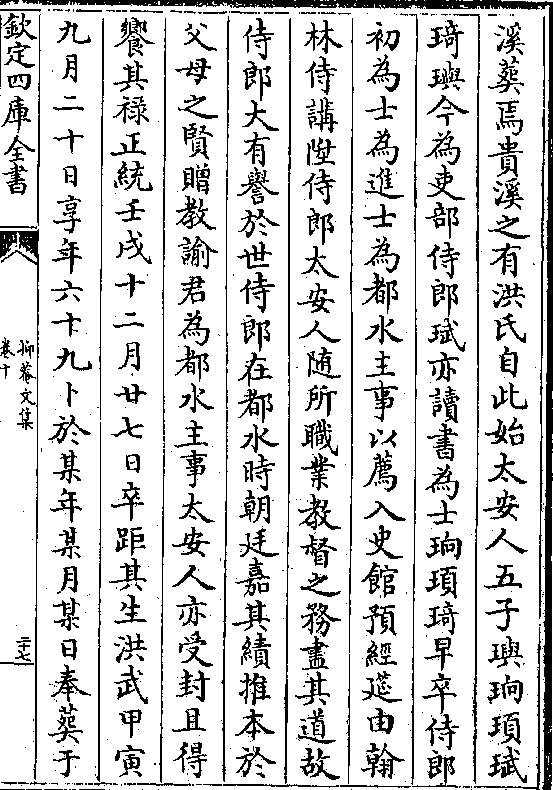 溪葬焉貴溪之有洪氏自此始太安人五子璵珦頊珷
琦璵今為吏部侍郎珷亦讀書為士珦頊琦早卒侍郎
初為士為進士為都水主事以薦入史館預經筵由翰
林侍講陞侍郎太安人随所職業教督之務盡其道故
侍郎大有譽於世侍郎在都水時朝廷嘉其績推本於
父母之賢贈教諭君為都水主事太安人亦受封且得
饗其祿正統壬戌十二月廿七日卒距其生洪武甲寅
九月二十日享年六十九卜於某年某月某日奉葬于
欽定四庫全書
抑菴文集
卷十
二十七